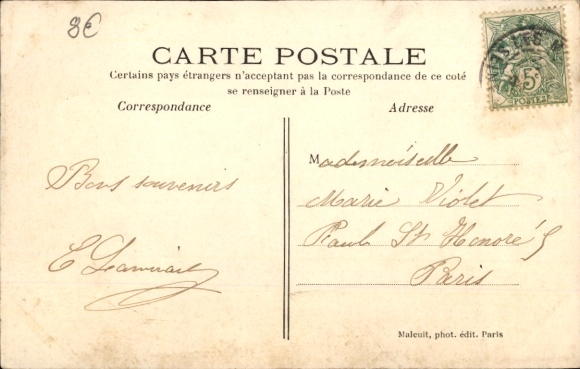 8€
CARTE POSTALE
Certains pays étrangers n'acceptant pas la correspondance de ce coté
se renseigner à la Poste
Correspondance
Adresse
5c
POSTES
Mademoiselle
Marie Violet
Bons souvenirs
St Honoré 5
E
Paris
Maleuit, phot. édit. Paris